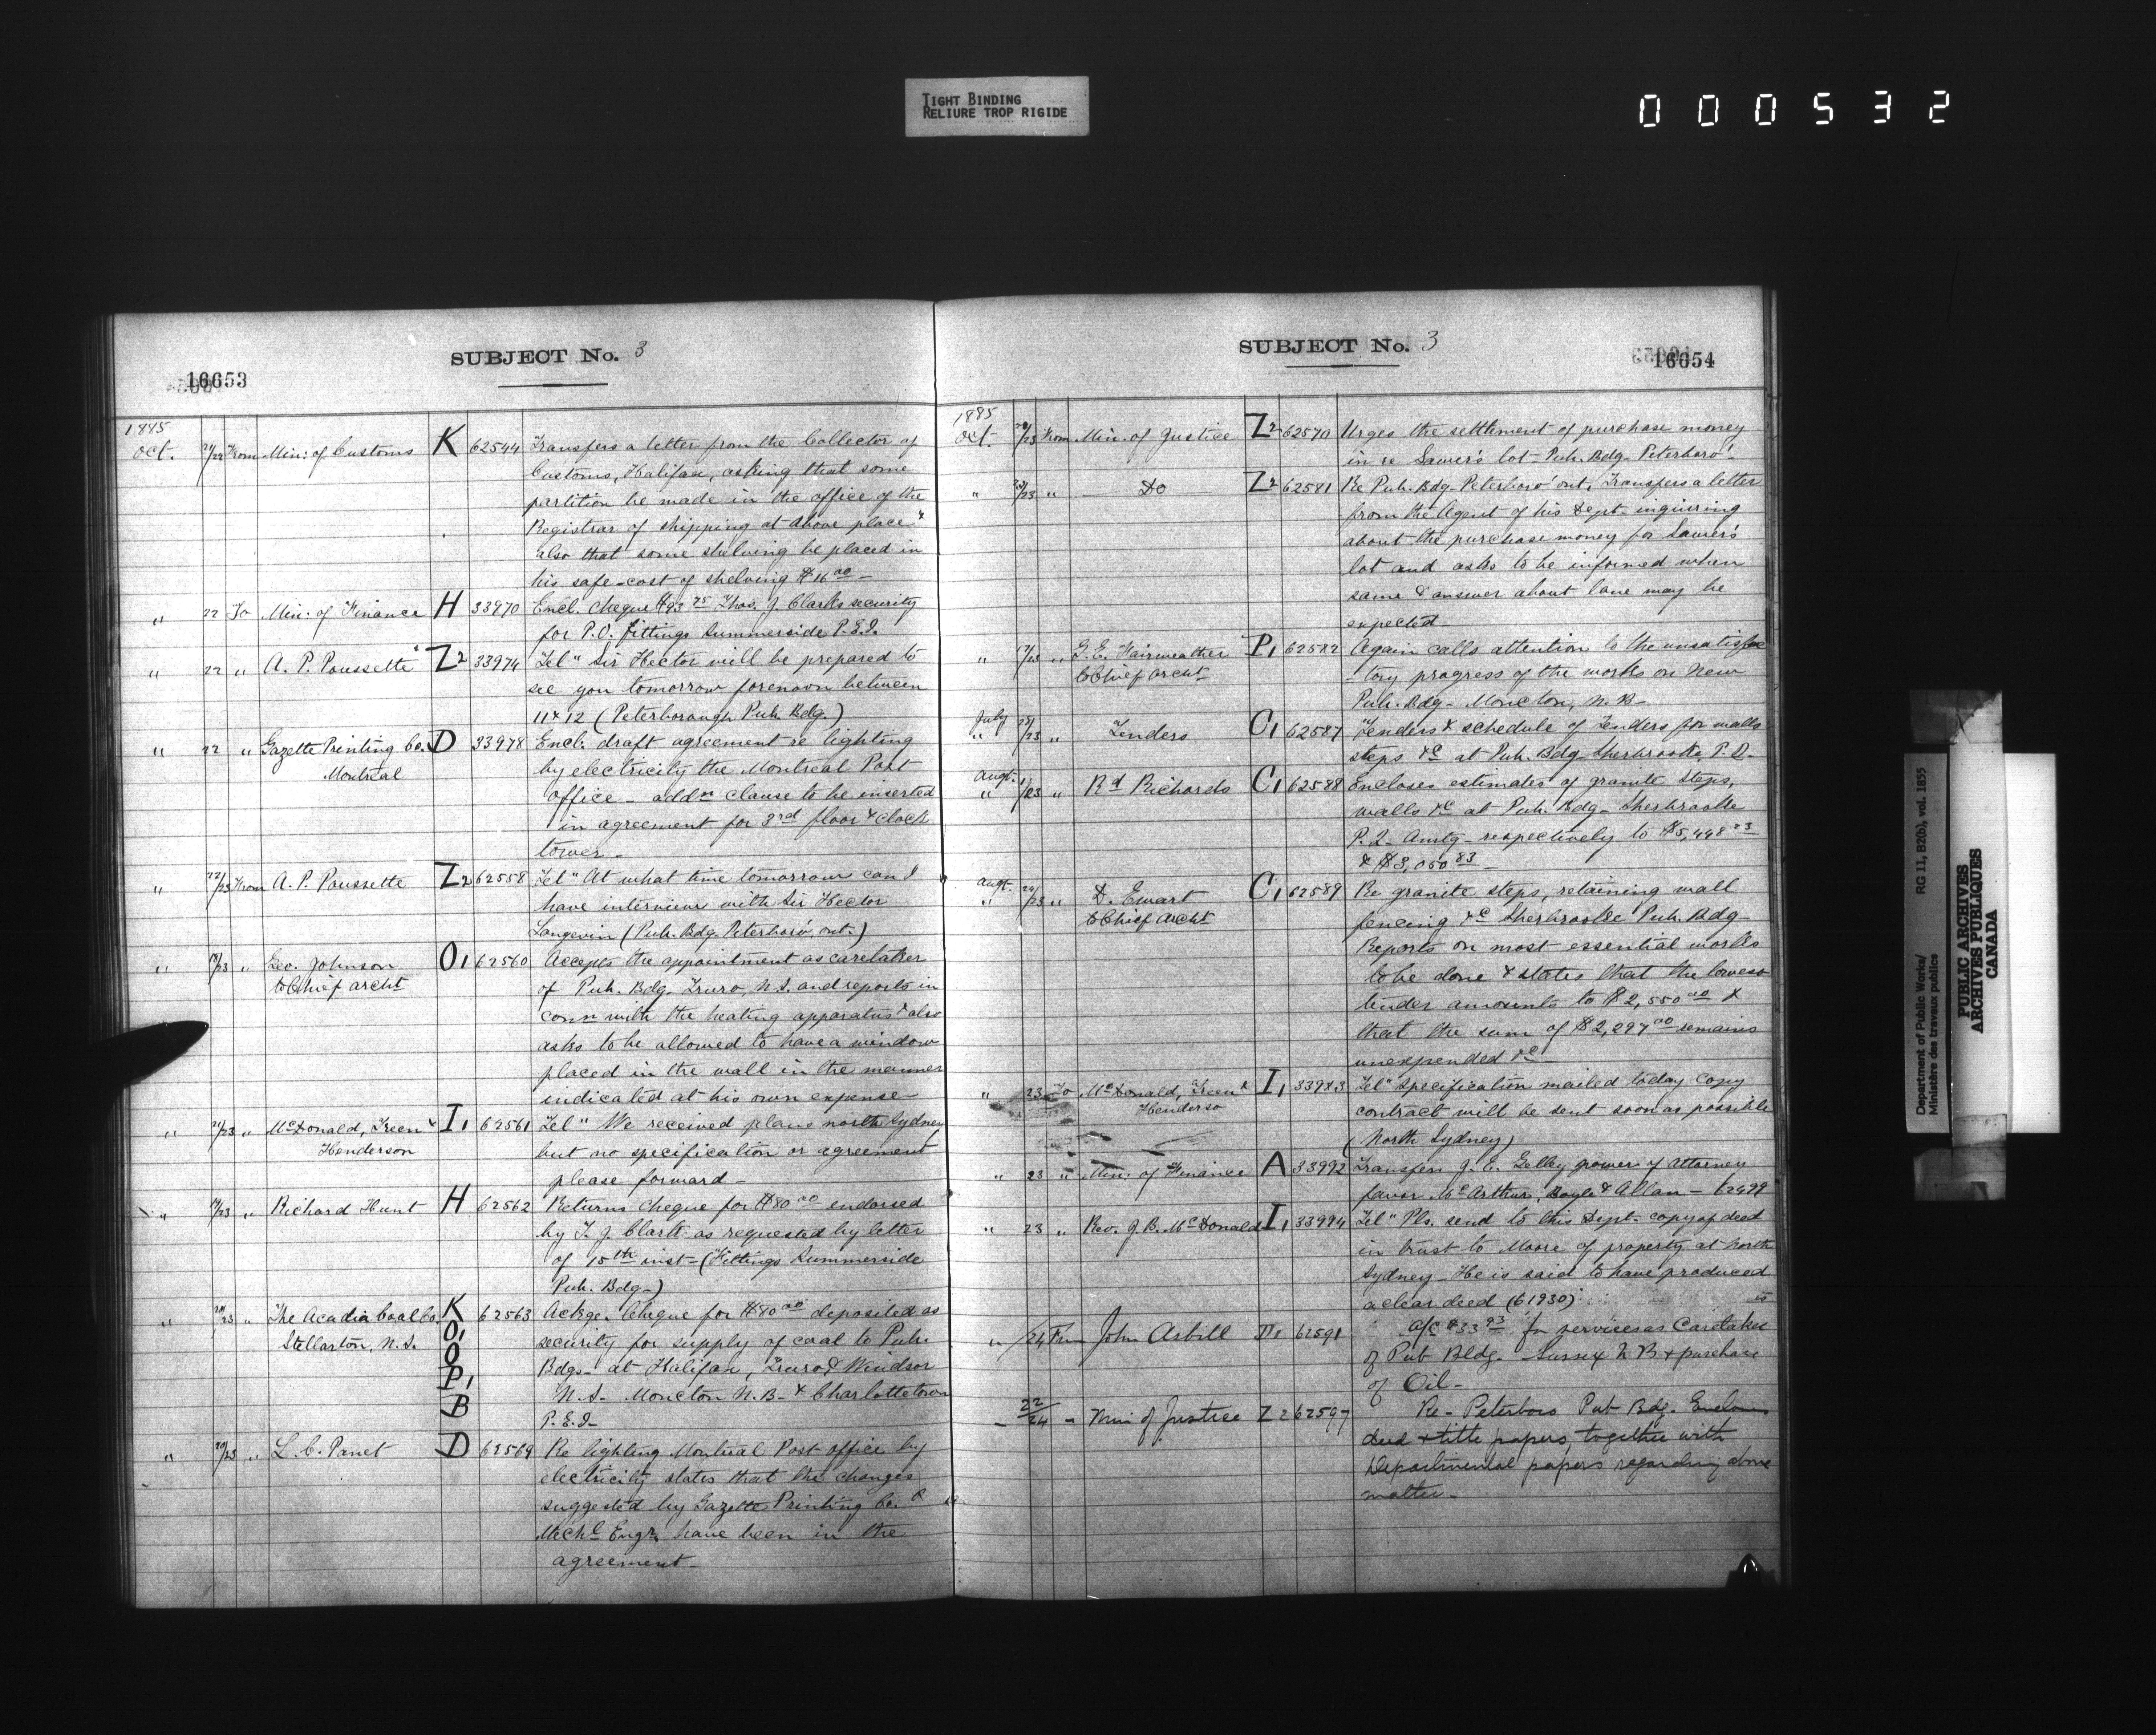 TIGHT BINDING
RELIURE TROP RIGIDE
000532
SUBJECT No. 3
16653
1885
Oct. 21/22 From Min: of Customs K 62544 Transfers a letter from the Collector of
Customs, Halifax, asking that some
partition be made in the office of the
Registrar of shipping at above place &
also that some shelving be placed in
his safe - cost of shelving $16 00 -
" 22 To Min: of Finance H 33970 Encl. cheque $93 75 Thos. J. Clarks security
for P.O. fittings Summerside P.E.I.
" 22 " A. P. Poussette Z2 33974 Tel" Sir Hector will be prepared to
see you tomorrow forenoon between
11 & 12 (Peterborough Pub. Bdg.)
" 22 " Gazette Printing Co. D 33978 Encl. draft agreement re lighting
Montreal by electricity the Montreal Post
office - addn clause to be inserted
in agreement for 3rd floor & clock
tower -
" 22/23 From A. P. Poussette Z2 62558 Tel" At what time tomorrow can I
have interview with Sir Hector
Langevin (Pub. Bdg. Peterboro' ont.)
" /23 " Geo. Johnson O1 62560 Accepts the appointment as caretaker
to Chief archt of Pub. Bdg. Truro, N.S. and reports in
conn with the heating apparatus & also
asks to be allowed to have a window
placed in the wall in the manner
indicated at his own expense -
" 21/23 " McDonald, Green & I1 62561 Tel" We received plans north Sydney
Henderson but no specification or agreement
please forward -
" /23 " Richard Hunt H 62562 Returns cheque for $80 00 endorsed
by T. J. Clark as requested by letter
of 15th inst - (Fittings Summerside
Pub. Bdg -)
" 20/23 " The Acadia Coal Co. K 62563 Ackge. Cheque for $80 00 deposited as
Stellarton, N.S. O1 security for supply of coal to Pub.
O Bdgs - at Halifax, Truro & Windsor
P1 N.S. - Moncton N.B. - & Charlottetown
B P.E.I. -
" 20/23 " L. C. Panet D 62569 Re lighting Montreal Post office by
electricity states that the changes
suggested by Gazette Printing Co. &
Mechl Engr. have been in the
agreement -
SUBJECT No. 3
16654
1885
Oct. 20/23 From Min. of Justice Z2 62570 Urges the settlement of purchase money
in re Sawer's lot - Pub. Bdg - Peterboro' -
" /23 " Do Z2 62581 Re Pub. Bdg - Peterboro' ont, Transfers a letter
from the Agent of his Dept - inquiring
about the purchase money for Sawer's
lot and asks to be informed when
same & answer about lane may be
expected -
" 17/23 " G. E. Fairweather P1 62582 Again calls attention to the unsatisfac
to Chief archt - tory progress of the works on new
Pub. Bdg - Moncton, N.B -
July
" /23 " Tenders C1 62587 Tenders & schedule of Tenders for walls
steps &c at Pub. Bdg - Sherbrooke, P.Q -
Augt.
" /23 " Rd Richards C1 62588 Encloses estimates of granite steps,
walls &c at Pub. Bdg - Sherbrooke
P.Q. Amtg - respectively to $5,448 23
& $3,050 83 -
Augt.
" 20/23 " D. Ewart C1 62589 Re granite steps, retaining wall
to Chief archt fencing &c Sherbrooke Pub. Bdg -
Reports on most essential works
to be done & states that the lowest
tender amounts to $2,550 00 &
that the sum of $2,297 00 remains
unexpended &c -
" 23 To McDonald, Green & I1 33983 Tel" Specification mailed today copy
Henderso contract will be sent soon as possible
(North Sydney)
" 23 " Min: of Finance A 33992 Transfers J. E. Gelley power of Attorney
favor McArthur, Boyle & Allan - 62499
" 23 " Rev. J. B. McDonald I1 33994 Tel" Pls. send to this Dept - copy of deed
in trust to Moore of property at North
Sydney - He is said to have produced
a clear deed (61930)
" /24 Frm John Asbill P1 62591 a/c $33 93 for services as Caretaker
of Pub Bldg - Sussex N B & purchase
of Oil -
" 22/24 " Min of Justice Z2 62597 Re - Peterboro Pub Bdg. Encloses
deed & title papers, together with
Departmental papers regarding above
matter -
Department of Public Works/ RG 11, B2(b), vol. 1855
Ministère des travaux publics
PUBLIC ARCHIVES
ARCHIVES PUBLIQUES
CANADA